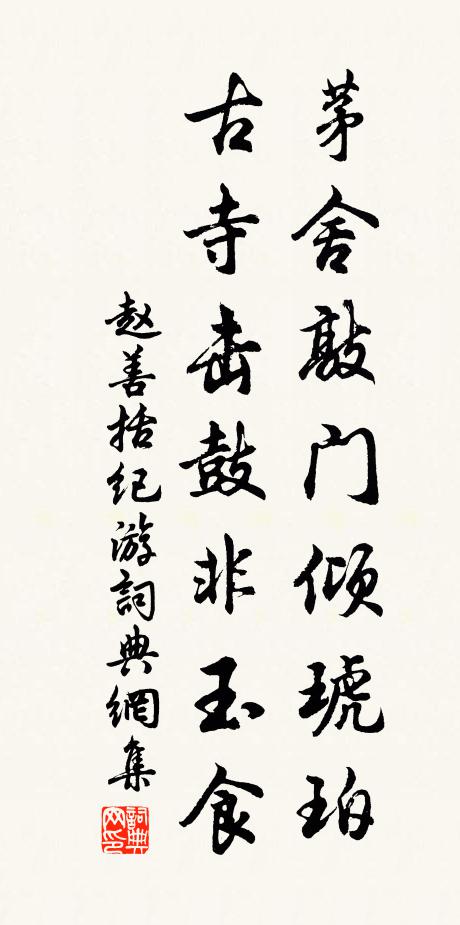 茅舍敲門傾琥珀
古寺击鼓非玉食
赵善括纪游詞典網集
詞典网印